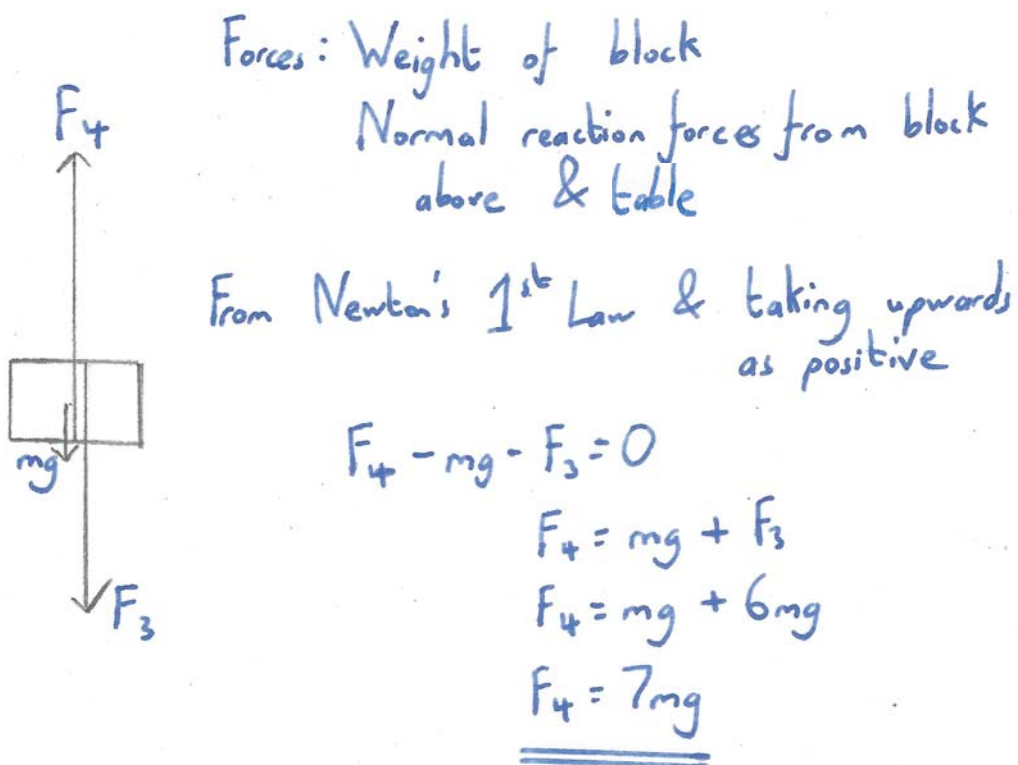 Forces: Weight of block
Normal reaction forces from block
above & table
F₄
From Newton's 1ˢᵗ Law & taking upwards
as positive
mg
F₃
F₄ - mg - F₃ = 0
F₄ = mg + F₃
F₄ = mg + 6mg
F₄ = 7mg